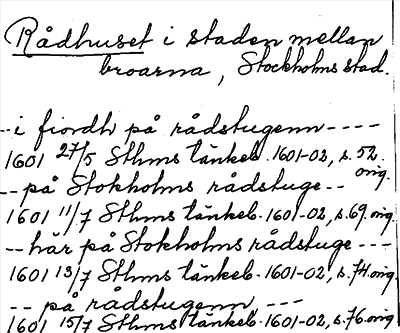 Rådhuset i staden mellan
broarna, Stockholms stad.
-- i fiordh på rådstugenn ----
1601 27/5 Sthms tänkeb. 1601-02, s. 52
orig.
-- på Stokholms rådstuge --
1601 11/7 Sthms tänkeb. 1601-02, s. 69 orig.
-- här på Stokholms rådstuge ---
1601 13/7 Sthms tänkeb. 1601-02, s. 74 orig.
-- på rådstugenn ---
1601 15/7 Sthms tänkeb. 1601-02, s. 76 orig.